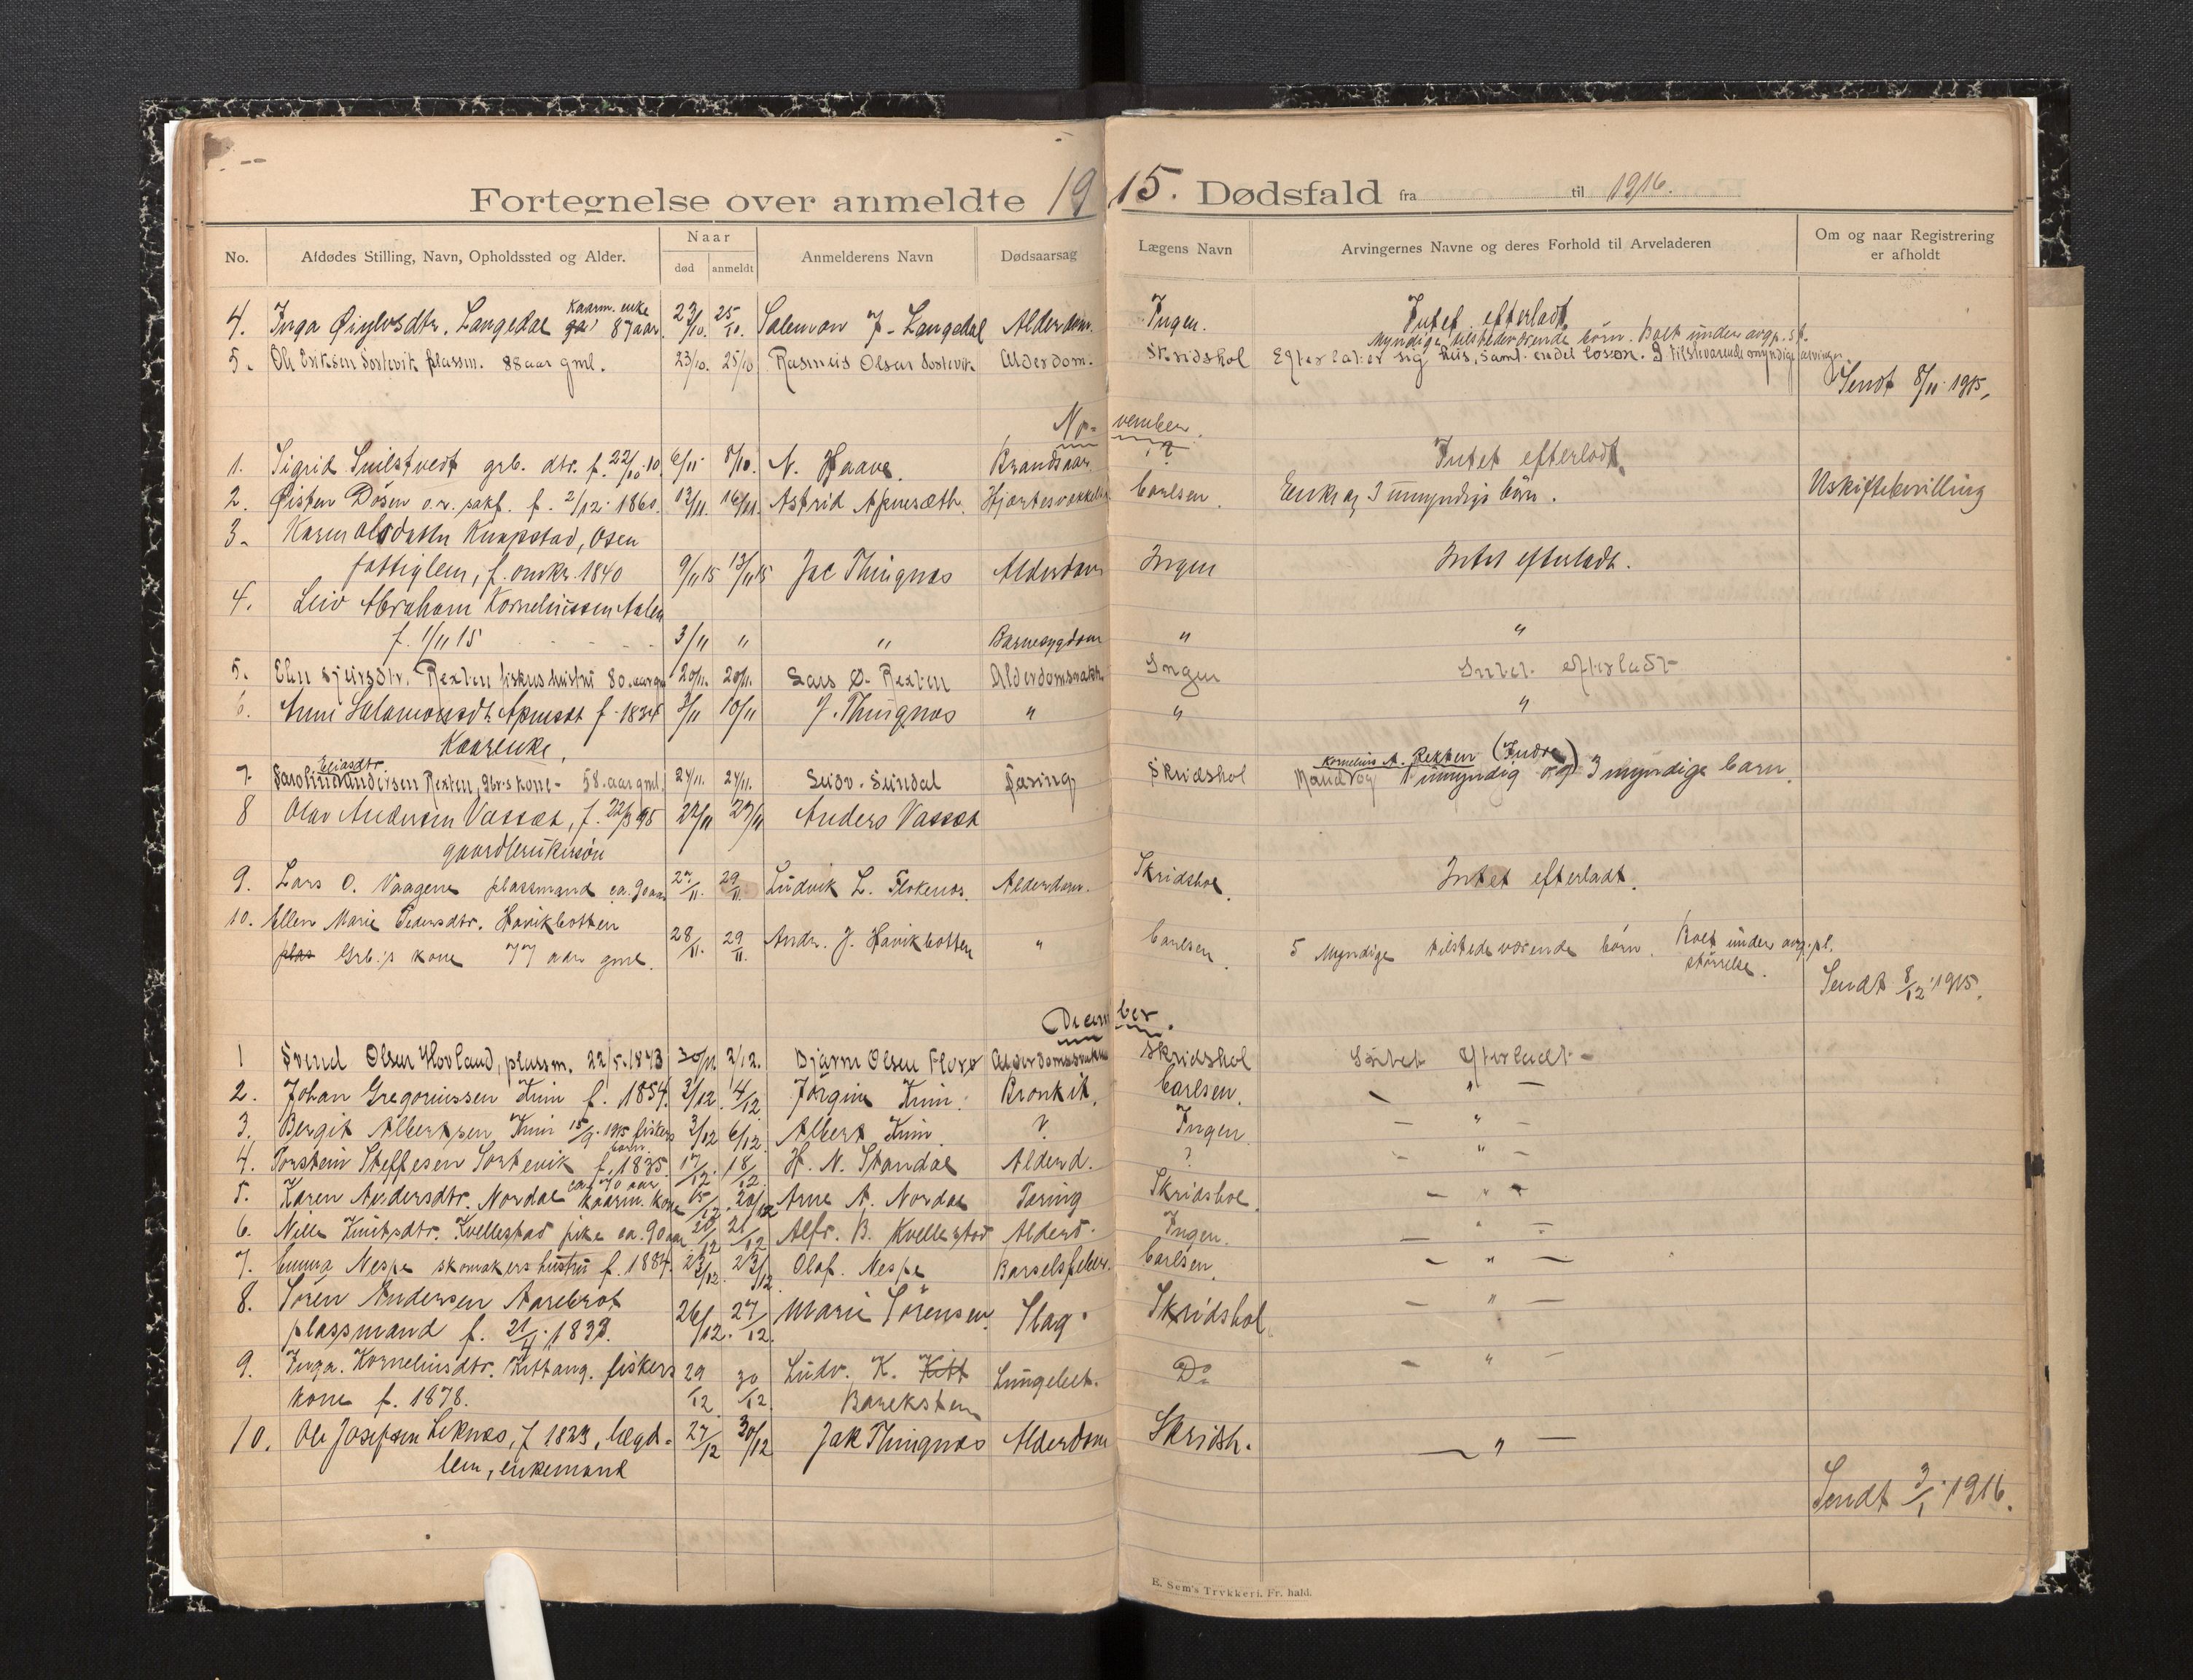 Fortegnelse over anmeldte 1915. Dødsfald fra til 1916.
No. Afdødes Stilling, Navn, Opholdssted og Alder. Naar død anmeldt Anmelderens Navn Dødsaarsag Lægens Navn Arvingernes Navne og deres Forhold til Arveladeren Om og naar Registrering er afholdt
Kaarm. enke
4. Inga Langedal 87 aar 23/10. 25/10. Salemon J. Langedal Alderdom. Ingen. Intet efterladt.
Myndige tilstedeværende börn. Boet under
5. Ole Eriksen Sortevik plassm. 88 aar gml. 23/10. 25/10 Rasmus Olsen Sortevik Alderdom. Skridshol Efterlater sig hus, samt endel løsøre.
Sendt 8/11 1915.
No- vember.
1. Sigrid grb. dtr. f. 22/10 10. 6/11 8/10. N. Haave. Brandsaar. ? Intet efterladt.
2. Øisten Døsen o.r. sakf. f. 2/12 1860. 13/11. 16/11. Astrid Apneseth. Carlsen. Enke og 3 umyndige børn. Uskiftebevilling
3. Karen Olsdatter Knapstad, Osen
fattiglem, f. omkr. 1840 9/11 15 13/11 15 Jac Thingnes Alderdom Ingen Intet efterladt.
4. Leiv Abraham Korneliussen
f. 1/11 15 3/11 " " Barnesygdom " "
5. Rexten fiskers hustru 80 aar 20/11. 20/11. Lars O. Rexten Ingen Intet efterladt
6. Anne Salamonsdt. Apneset f. 183 3/11 10/11 J. Thingnes " " "
Kaarenke.
Eliasdtr. Kornelius A. Rexten (Indre)
7. Andersen Rexten, Gbr.s kone - 58. aar gml. 24/11. 24/11. Sundal Tæring Skridshol Mand og 1 umyndig og 3 myndige barn.
8 Olav Andersen Vasset, f. 22/3 95 22/11 27/11 Anders Vasset
gaardbrukersøn
9. Lars O. Vaagene plassmand ca. 90 aar 27/11. 29/11. Ludvik L. Flokenes. Alderdom. Skridshol. Intet efterladt.
10. Ellen Marie Pedersdtr. Havikbotten
plas Grb.'s kone 77 aar gml. 28/11. 29/11. Andr. J. Havikbotten " Carlsen. 5 Myndige tilstedeværende börn. Boet under avg.pl.
størrelse.
Sendt 8/12 1915.
Decem ber.
1 Svend Olsen Hovland, plassm. 22/5 1843 30/11 2/12. Bjarne Olsen Florø Skridshol Intet efterladt -
2. Johan Gregoriussen Kinn f. 1854. 3/12. 4/12. Jørgine Kinn. Bronkit. Carlsen. - " -
3. Bergit Albertsen Kinn 15/9 1915 fiskers barn. 3/12 6/12 Albert Kinn. ? Ingen. - " -
4. Torstein Steffesen Sortevik f. 1835. 17/12. 18/12. H. N. Standal Alderd. ? - " -
ca. 70 aar
5. Karen Andersdtr. Nordal kaarm. kone 15/12. 20/12 Arne A. Nordal Tæring Skridshol. - " -
6. Nille Knutsdtr. Kvellestad pike ca. 90 aar 20/12 21/12 Alfr. B. Kvellestad Alderd. Ingen. - " -
7. Emma Nespe skomakers hustru f. 1884. 23/12. 23/12 Olaf. Nespe Barselfeber. Carlsen. - " -
8. Sören Andersen Aarebrot
plassmand f. 1838. 26/12. 27/12. Marie Sörensen Slag. Skridshol. - " -
9. Inga. Korneliusdtr. Kittang. fiskers
kone f. 1878. 29/12. 30/12. Ludv. K. Kitt Lungebet. Do - " -
Bareksten
10. Ole Josefsen Leknes, f 1823, lægd-
lem, enkemand 27/12 30/12 Jak Thingnes Alderdom Skridsh. - " -
Sendt 3/1 1916.
E. Sem's Trykkeri, Fr. hald.